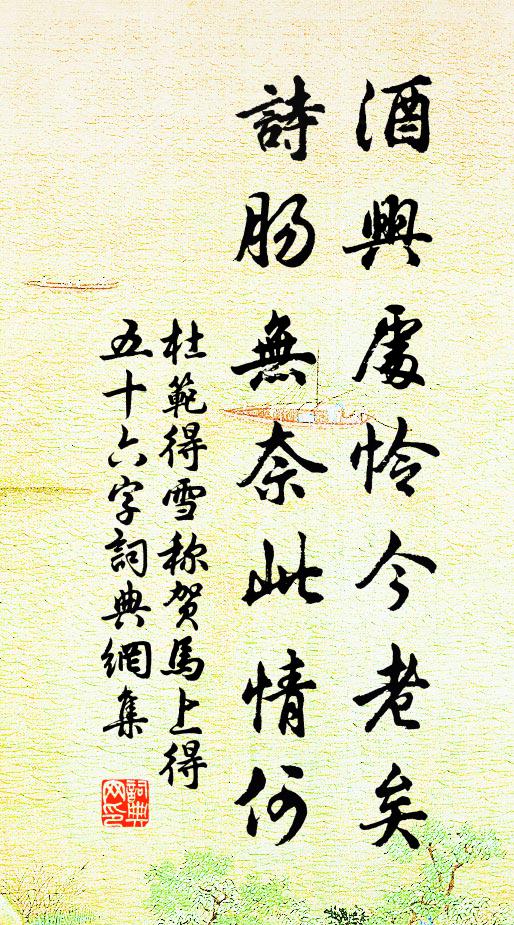 酒興處怜今老矣
詩肠無奈此情何
杜範得雪称贺馬上得
五十六字詞典網集
詞典
网印